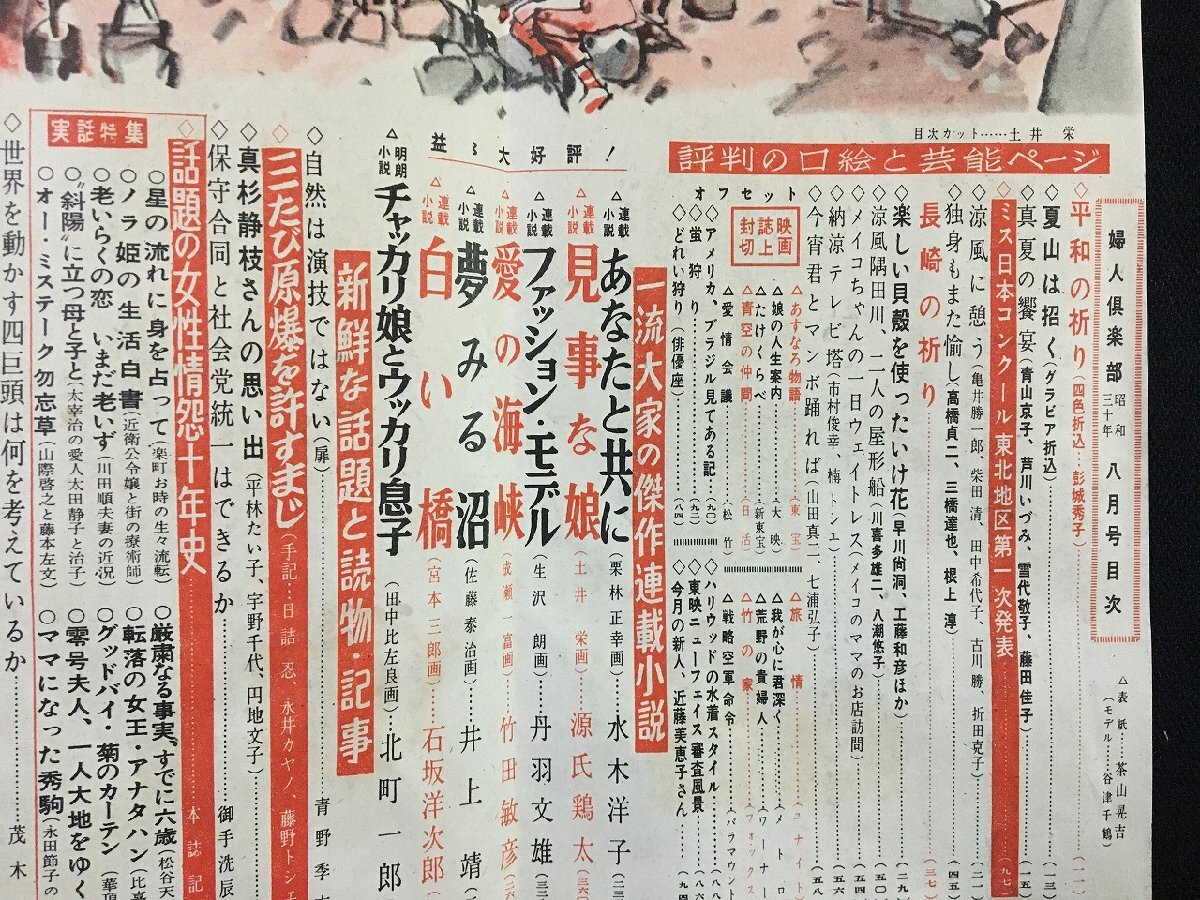 目次カット……土井 栄
婦人倶楽部 昭和三十年 八月号目次
△表紙……茶山晃吉
(モデル……谷津千鶴)
評判の口絵と芸能ページ
◇平和の祈り(四色折込…彭城秀子)……(一一)
夏山は招く(グラビア折込)……(一三)
◇真夏の饗宴(青山京子、芦川いづみ、雪代敬子、藤田佳子)……(一五)
◇ミス日本コンクール東北地区第一次発表……(九七)
◇涼風に憩う(亀井勝一郎、柴田清、田中希代子、古川勝、折田克子)……(二一)
◇独身もまた愉し(高橋貞二、三橋達也、根上淳)……(四五)
長崎の祈り……(三七)
楽しい貝殻を使ったいけ花(早川尚洞、工藤和彦ほか)……(二九)
◇涼風隅田川、二人の屋形船(川喜多雄二、八潮悠子)……(五〇)
◇メイコちゃんの一日ウェイトレス(メイコのママのお店訪問)……(五四)
◇納涼テレビ塔(市村俊幸、楠トシエ)……(五六)
◇今宵君とマンボ踊れば(山田真二、七浦弘子)……(五八)
映画誌上封切
△あすなろ物語……(東宝)
△娘の人生案内……(大映)
△たけくらべ……(新東宝)
△青空の仲間……(日活)
△愛情会議……(松竹)
△旅情……(ユナイト)
△我が心に君深く……(メトロ)
△荒野の貴婦人……(ワーナー)
△竹の家……(フォックス)
△戦略空軍命令……(パラマウント)
オフセット
◇アメリカ、ブラジル見てある記……(九〇)
◇蛍狩り……(九二)
◇どれい狩り(俳優座)……(八四)
◇ハリウッドの水着スタイル……(八八)
◇東映ニューフェイス審査風景
◇今月の新人、近藤美恵子さん
一流大家の傑作連載小説
益々大好評!
△連載小説 あなたと共に(栗林正幸画)……水木洋子
△連載小説 見事な娘(土井栄画)……源氏鶏太
△連載小説 ファッション・モデル(生沢朗画)……丹羽文雄
△連載小説 愛の海峡(成瀬一富画)……竹田敏彦
△連載小説 夢みる沼(佐藤泰治画)……井上靖
△連載小説 白い橋(宮本三郎画)……石坂洋次郎
△明朗小説 チャッカリ娘とウッカリ息子(田中比左良画)…北町一郎
新鮮な話題と読物・記事
◇自然は演技ではない(扉)……青野季吉
◇三たび原爆を許すまじ(手記…日詰忍、永井カヤノ、藤野トシエ
◇真杉静枝さんの思い出(平林たい子、宇野千代、円地文子)……
◇保守合同と社会党統一はできるか……御手洗辰
◇話題の女性情怨十年史……本誌記
実話特集
○星の流れに身を占って(楽町お時の生々流転)
○ノラ姫の生活白書(近衛公令嬢と街の療術師)
○老いらくの恋 いまだ老いず(川田順夫妻の近況)
○“斜陽”に立つ母と子と(太宰治の愛人太田静子と治子)
○オー・ミステーク勿忘草(山際啓之と藤本左文)
○厳粛なる事実“すでに六歳(松谷天
○転落の女王・アナタハン(比嘉
○グッドバイ・菊のカーテン(華頂
○零号夫人、一人大地をゆく
○ママになった秀駒(永田節子の
◇世界を動かす四巨頭は何を考えているか……茂木